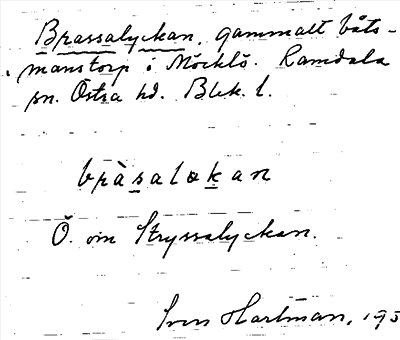 Brassalyckan, gammalt båts-
manstorp i Möcklö. Ramdala
sn. Östra hd. Blek. l.
bràsaløkan
Ö. om Stryssalyckan.
Sven Hartman, 193